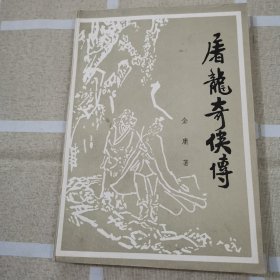 屠龍奇俠傳
金庸 著